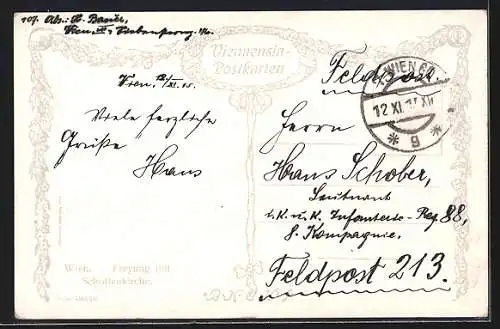 107. Abs: H. Bauer,
Wien
Viennensia-
Postkarten
Feldpost.
WIEN
12 XI.
* 9 *
Wien, 12/XI. 15.
Viele herzliche
Grüße
Hans
Herrn
Hans Schober,
Leutnant
i. K. u. K. Infanterie-Reg. 88,
8. Kompagnie.
Feldpost 213.
Wien. Freyung mit
Schottenkirche.
B.K.